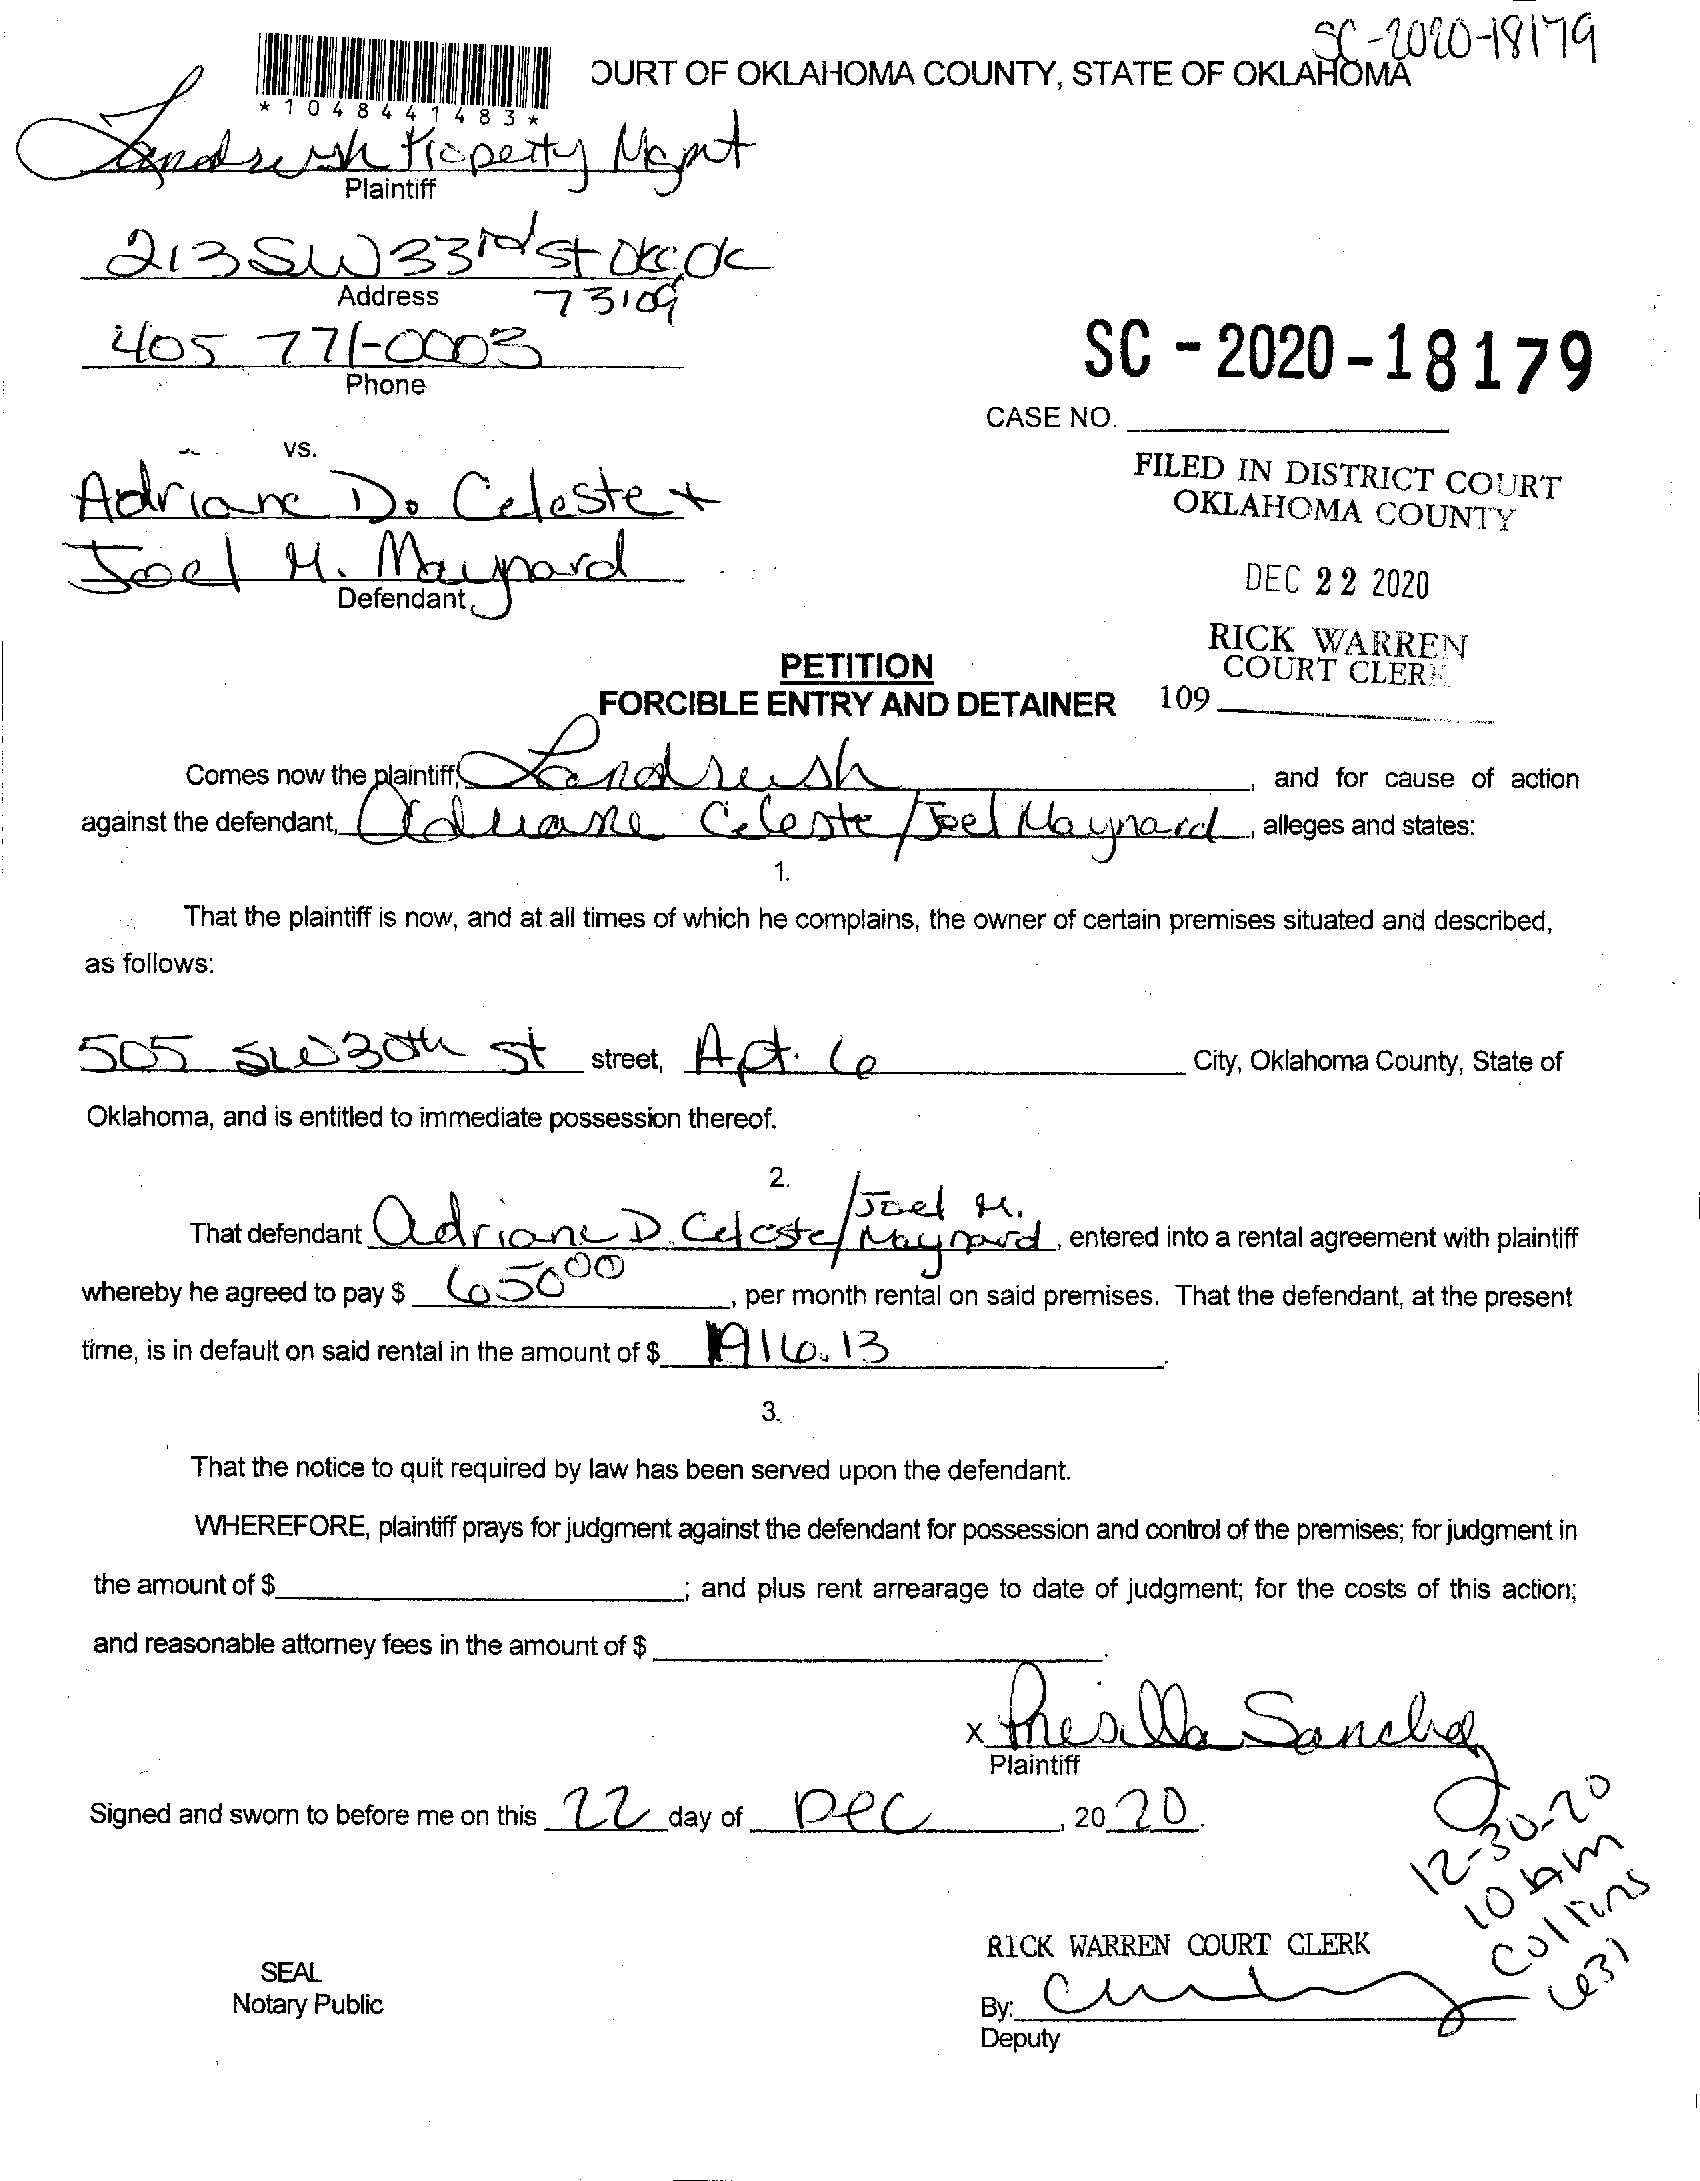 SC-2020-18179
OURT OF OKLAHOMA COUNTY, STATE OF OKLAHOMA
*1048441483*
Landrush Property Mgmt
Plaintiff
213 SW 33rd St OKC, OK
Address 73109
405 771-0003
Phone
SC-2020-18179
CASE NO.
vs.
Adriane D. Celeste +
Joel M. Maynard
Defendant
FILED IN DISTRICT COURT
OKLAHOMA COUNTY
DEC 22 2020
RICK WARREN
COURT CLERK
109
PETITION
FORCIBLE ENTRY AND DETAINER
Comes now the plaintiff, Landrush, and for cause of action
against the defendant, Adriane Celeste/Joel Maynard, alleges and states:
1.
That the plaintiff is now, and at all times of which he complains, the owner of certain premises situated and described,
as follows:
505 SW 30th St street, Apt. 6 City, Oklahoma County, State of
Oklahoma, and is entitled to immediate possession thereof.
2.
That defendant Adriane D. Celeste/Joel M. Maynard, entered into a rental agreement with plaintiff
whereby he agreed to pay $ 650 00, per month rental on said premises. That the defendant, at the present
time, is in default on said rental in the amount of $ 1916.13.
3.
That the notice to quit required by law has been served upon the defendant.
WHEREFORE, plaintiff prays for judgment against the defendant for possession and control of the premises; for judgment in
the amount of $; and plus rent arrearage to date of judgment; for the costs of this action;
and reasonable attorney fees in the amount of $.
x Presilla Sanchez
Plaintiff
Signed and sworn to before me on this 22 day of Dec, 20 20.
12-30-20
10 AM
Collins
631
RICK WARREN COURT CLERK
SEAL
Notary Public
By:
Deputy